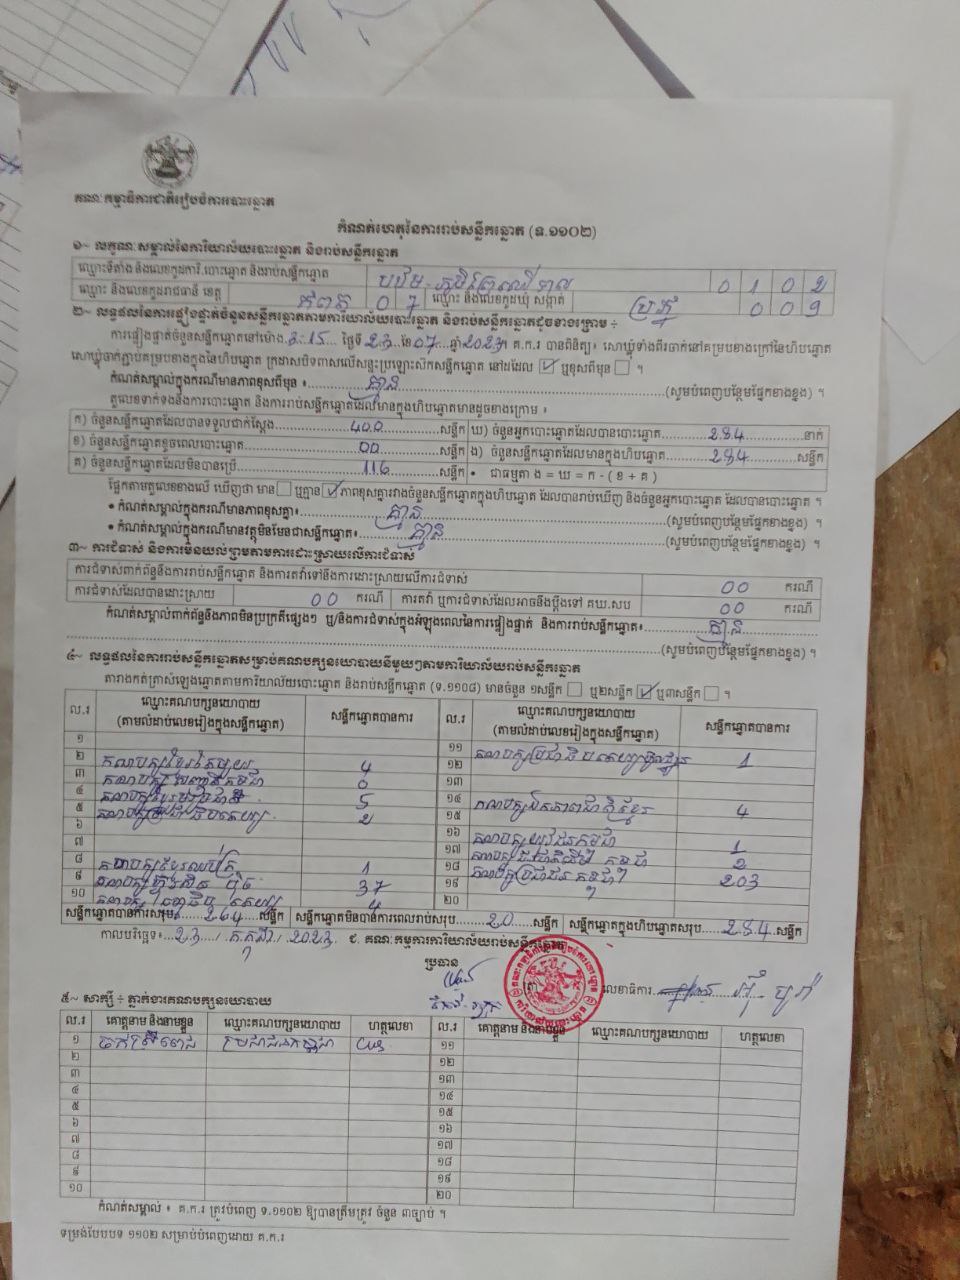 គណៈកម្មាធិការជាតិរៀបចំការបោះឆ្នោត
កំណត់ហេតុនៃការរាប់សន្លឹកឆ្នោត (ទ.១១០២)
១~ លក្ខណៈសម្គាល់នៃការិយាល័យបោះឆ្នោត និងរាប់សន្លឹកឆ្នោត
ឈ្មោះទីតាំង និងលេខកូដការិ.បោះឆ្នោត និងរាប់សន្លឹកឆ្នោត 0 1 0 2
ឈ្មោះ និងលេខកូដរាជធានី ខេត្ត កំពត 0 7 ឈ្មោះ និងលេខកូដឃុំ សង្កាត់ 0 0 9
២~ លទ្ធផលនៃការផ្ទៀងផ្ទាត់ចំនួនសន្លឹកឆ្នោតតាមការិយាល័យបោះឆ្នោត និងរាប់សន្លឹកឆ្នោតដូចខាងក្រោម ÷
ការផ្ទៀងផ្ទាត់ចំនួនសន្លឹកឆ្នោតនៅម៉ោង 3:15 ថ្ងៃទី 23 ខែ 07 ឆ្នាំ 2023 គ.ក.រ បានពិនិត្យ៖ សោឃ្លុំទាំងពីរចាក់នៅគម្របខាងក្រៅនៃហិបឆ្នោត
សោឃ្លុំចាក់ភ្ជាប់គម្របខាងក្នុងនៃហិបឆ្នោត ក្រដាសបិទពាសលើសន្ទះប្រឡោះសឹកសន្លឹកឆ្នោត នៅដដែល ☑ ឬខុសពីមុន ☐ ។
កំណត់សម្គាល់ក្នុងករណីមានភាពខុសពីមុន ៖ គ្មាន (សូមបំពេញបន្ថែមផ្នែកខាងខ្នង) ។
តួលេខទាក់ទងនឹងការបោះឆ្នោត និងការរាប់សន្លឹកឆ្នោតដែលមានក្នុងហិបឆ្នោតមានដូចខាងក្រោម ៖
ក) ចំនួនសន្លឹកឆ្នោតដែលបានទទួលជាក់ស្តែង 400 សន្លឹក ឃ) ចំនួនអ្នកបោះឆ្នោតដែលបានបោះឆ្នោត 284 នាក់
ខ) ចំនួនសន្លឹកឆ្នោតខូចពេលបោះឆ្នោត 00 សន្លឹក ង) ចំនួនសន្លឹកឆ្នោតដែលមានក្នុងហិបឆ្នោត 284 សន្លឹក
គ) ចំនួនសន្លឹកឆ្នោតដែលមិនបានប្រើ 116 សន្លឹក • ជាធម្មតា ង = ឃ = ក - ( ខ + គ )
ផ្អែកតាមតួលេខខាងលើ ឃើញថា មាន ☐ ឬគ្មាន ☑ ភាពខុសគ្នារវាងចំនួនសន្លឹកឆ្នោតក្នុងហិបឆ្នោត ដែលបានរាប់ឃើញ និងចំនួនអ្នកបោះឆ្នោត ដែលបានបោះឆ្នោត ។
• កំណត់សម្គាល់ក្នុងករណីមានភាពខុសគ្នា៖ គ្មាន (សូមបំពេញបន្ថែមផ្នែកខាងខ្នង) ។
• កំណត់សម្គាល់ក្នុងករណីមានវត្ថុមិនមែនជាសន្លឹកឆ្នោត៖ គ្មាន (សូមបំពេញបន្ថែមផ្នែកខាងខ្នង) ។
៣~ ការជំទាស់ និងការមិនយល់ព្រមតាមការដោះស្រាយលើការជំទាស់
ការជំទាស់ពាក់ព័ន្ធនឹងការរាប់សន្លឹកឆ្នោត និងការតវ៉ាទៅនឹងការដោះស្រាយលើការជំទាស់ 00 ករណី
ការជំទាស់ដែលបានដោះស្រាយ 00 ករណី ការតវ៉ា ឬការជំទាស់ដែលអាចនឹងប្តឹងទៅ គឃ.សប 00 ករណី
កំណត់សម្គាល់ពាក់ព័ន្ធនឹងភាពមិនប្រក្រតីផ្សេងៗ ឬ/និងការជំទាស់ក្នុងអំឡុងពេលនៃការផ្ទៀងផ្ទាត់ និងការរាប់សន្លឹកឆ្នោត៖ គ្មាន
(សូមបំពេញបន្ថែមផ្នែកខាងខ្នង) ។
៤~ លទ្ធផលនៃការរាប់សន្លឹកឆ្នោតសម្រាប់គណបក្សនយោបាយនីមួយៗតាមការិយាល័យរាប់សន្លឹកឆ្នោត
តារាងកត់ត្រាសំឡេងឆ្នោតតាមការិយាល័យបោះឆ្នោត និងរាប់សន្លឹកឆ្នោត (ទ.១១០៨) មានចំនួន ១សន្លឹក ☐ ឬ២សន្លឹក ☑ ឬ៣សន្លឹក ☐ ។
ល.រ ឈ្មោះគណបក្សនយោបាយ (តាមលំដាប់លេខរៀងក្នុងសន្លឹកឆ្នោត) សន្លឹកឆ្នោតបានការ ល.រ ឈ្មោះគណបក្សនយោបាយ (តាមលំដាប់លេខរៀងក្នុងសន្លឹកឆ្នោត) សន្លឹកឆ្នោតបានការ
១ ១១
២ 4 ១២ 1
៣ 0 ១៣
៤ 5 ១៤ 4
៥ 2 ១៥
៦ ១៦ គណបក្សយុវជនកម្ពុជា 1
៧ ១៧ 2
៨ 1 ១៨ គណបក្សប្រជាជនកម្ពុជា 203
៩ 37 ១៩
១០ 4 ២០
សន្លឹកឆ្នោតបានការសរុប 264 សន្លឹក សន្លឹកឆ្នោតមិនបានការពេលរាប់សរុប 20 សន្លឹក សន្លឹកឆ្នោតក្នុងហិបឆ្នោតសរុប 284 សន្លឹក
កាលបរិច្ឆេទ៖ 23 / កក្កដា / 2023 ជ. គណៈកម្មការការិយាល័យរាប់សន្លឹកឆ្នោត
ប្រធាន
លេខាធិការ
៥~ សាក្សី ÷ ភ្នាក់ងារគណបក្សនយោបាយ
ល.រ គោត្តនាម និងនាមខ្លួន ឈ្មោះគណបក្សនយោបាយ ហត្ថលេខា ល.រ គោត្តនាម និងនាមខ្លួន ឈ្មោះគណបក្សនយោបាយ ហត្ថលេខា
១ ប្រជាជនកម្ពុជា ១១
២ ១២
៣ ១៣
៤ ១៤
៥ ១៥
៦ ១៦
៧ ១៧
៨ ១៨
៩ ១៩
១០ ២០
កំណត់សម្គាល់ ៖ គ.ក.រ ត្រូវបំពេញ ទ.១១០២ ឱ្យបានត្រឹមត្រូវ ចំនួន ៣ច្បាប់ ។
ទម្រង់បែបបទ ១១០២ សម្រាប់បំពេញដោយ គ.ក.រ